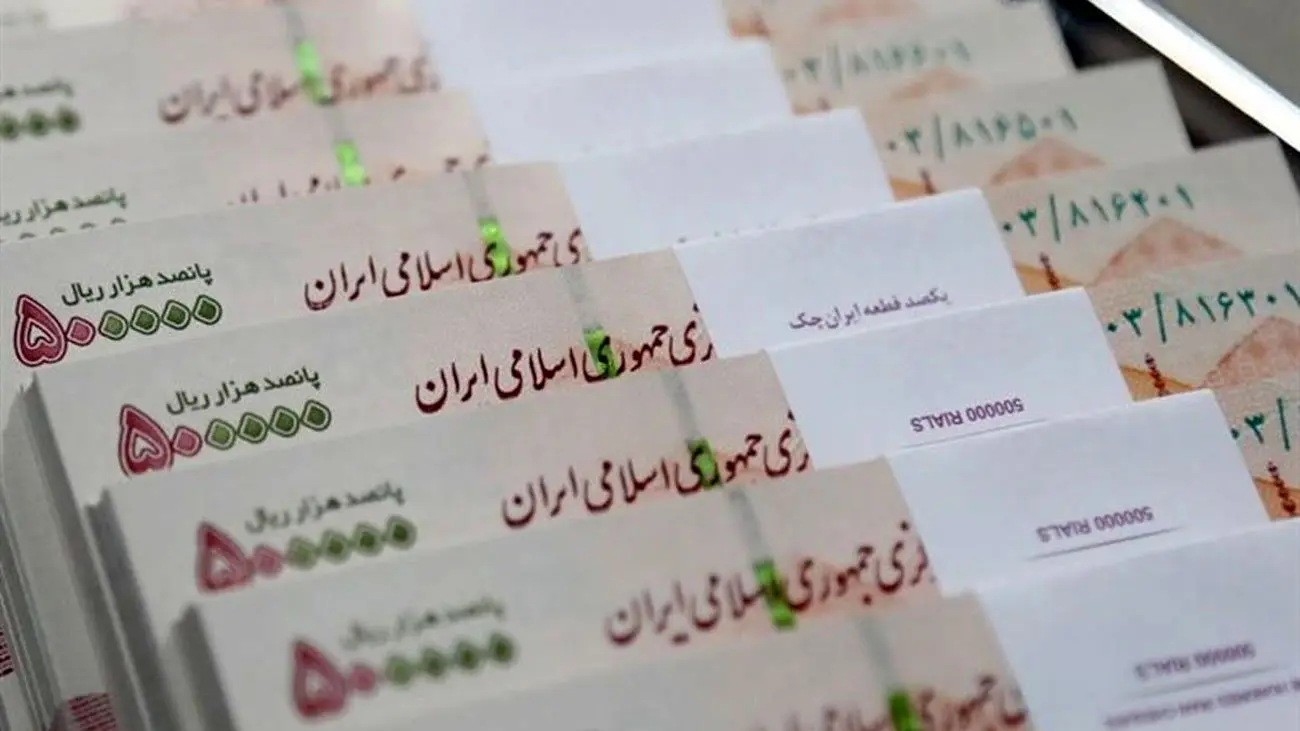 جمهوری اسلامی ایران
۰۳/۸۱۶۶۰۱
پانصد هزار ریال
جمهوری اسلامی ایران
۰۳/۸۱۶۵۰۱
پانصد هزار ریال
۵۰۰۰۰۰
جمهوری اسلامی ایران
۰۳/۸۱۶۴۰۱
پانصد هزار ریال
۵۰۰۰۰۰
جمهوری اسلامی ایران
یکصد قطعه ایران چک
۰۳/۸۱۶۳۰۱
پانصد هزار ریال
۵۰۰۰۰۰
جمهوری اسلامی ایران
500000 RIALS
۰۳/
پانصد هزار ریال
۵۰۰۰۰۰
جمهوری اسلامی ایران
500000 RIALS
جمهوری
500000 RIALS